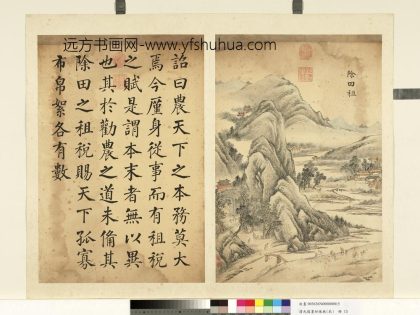 远方书画网-www.yfshuhua.com
詔曰農天下之本務莫大
焉今廑身從事而有租稅
之賦是謂本末者無以異
也其於勸農之道未備其
除田之租稅賜天下孤寡
布帛絮各有數
除田租